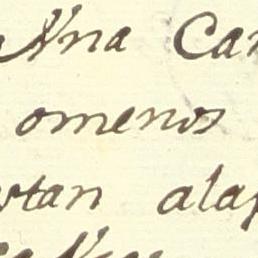 Nna Car
omenos
stan alap